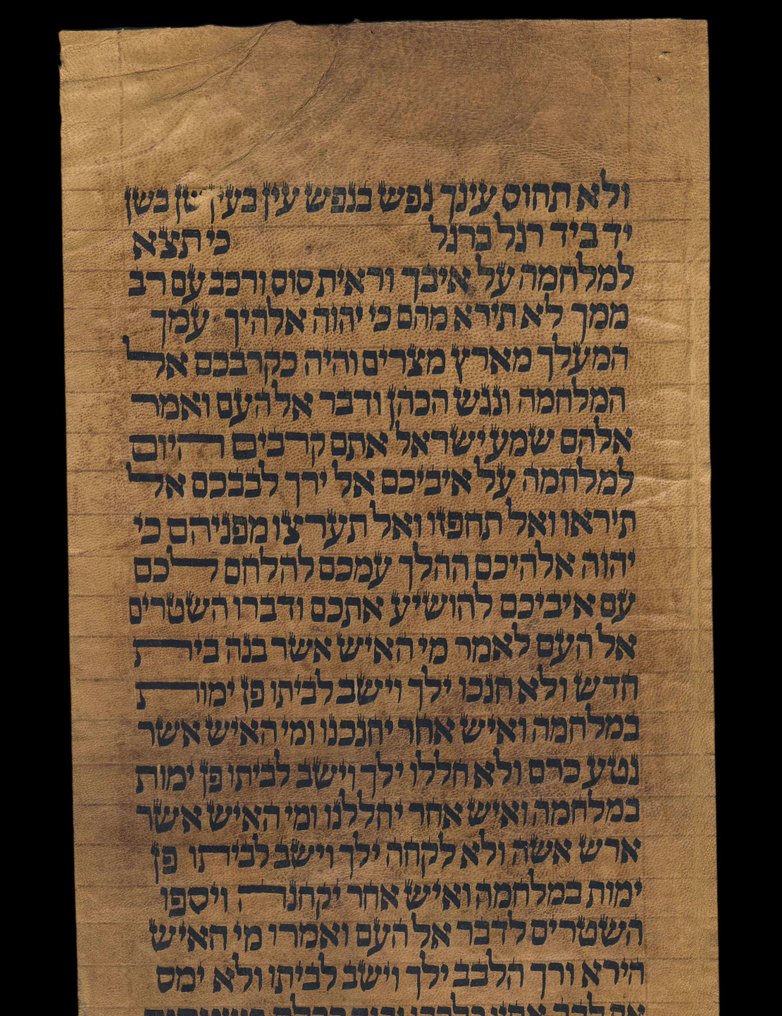 ולא תחוס עינך נפש בנפש עין בעין שן בשן
יד ביד רגל ברגל כי תצא
למלחמה על איבך וראית סוס ורכב עם רב
ממך לא תירא מהם כי יהוה אלהיך עמך
המעלך מארץ מצרים והיה כקרבכם אל
המלחמה ונגש הכהן ודבר אל העם ואמר
אלהם שמע ישראל אתם קרבים היום
למלחמה על איביכם אל ירך לבבכם אל
תיראו ואל תחפזו ואל תערצו מפניהם כי
יהוה אלהיכם ההלך עמכם להלחם לכם
עם איביכם להושיע אתכם ודברו השטרים
אל העם לאמר מי האיש אשר בנה בית
חדש ולא חנכו ילך וישב לביתו פן ימות
במלחמה ואיש אחר יחנכנו ומי האיש אשר
נטע כרם ולא חללו ילך וישב לביתו פן ימות
במלחמה ואיש אחר יחללנו ומי האיש אשר
ארש אשה ולא לקחה ילך וישב לביתו פן
ימות במלחמה ואיש אחר יקחנה ויספו
השטרים לדבר אל העם ואמרו מי האיש
הירא ורך הלבב ילך וישב לביתו ולא ימס